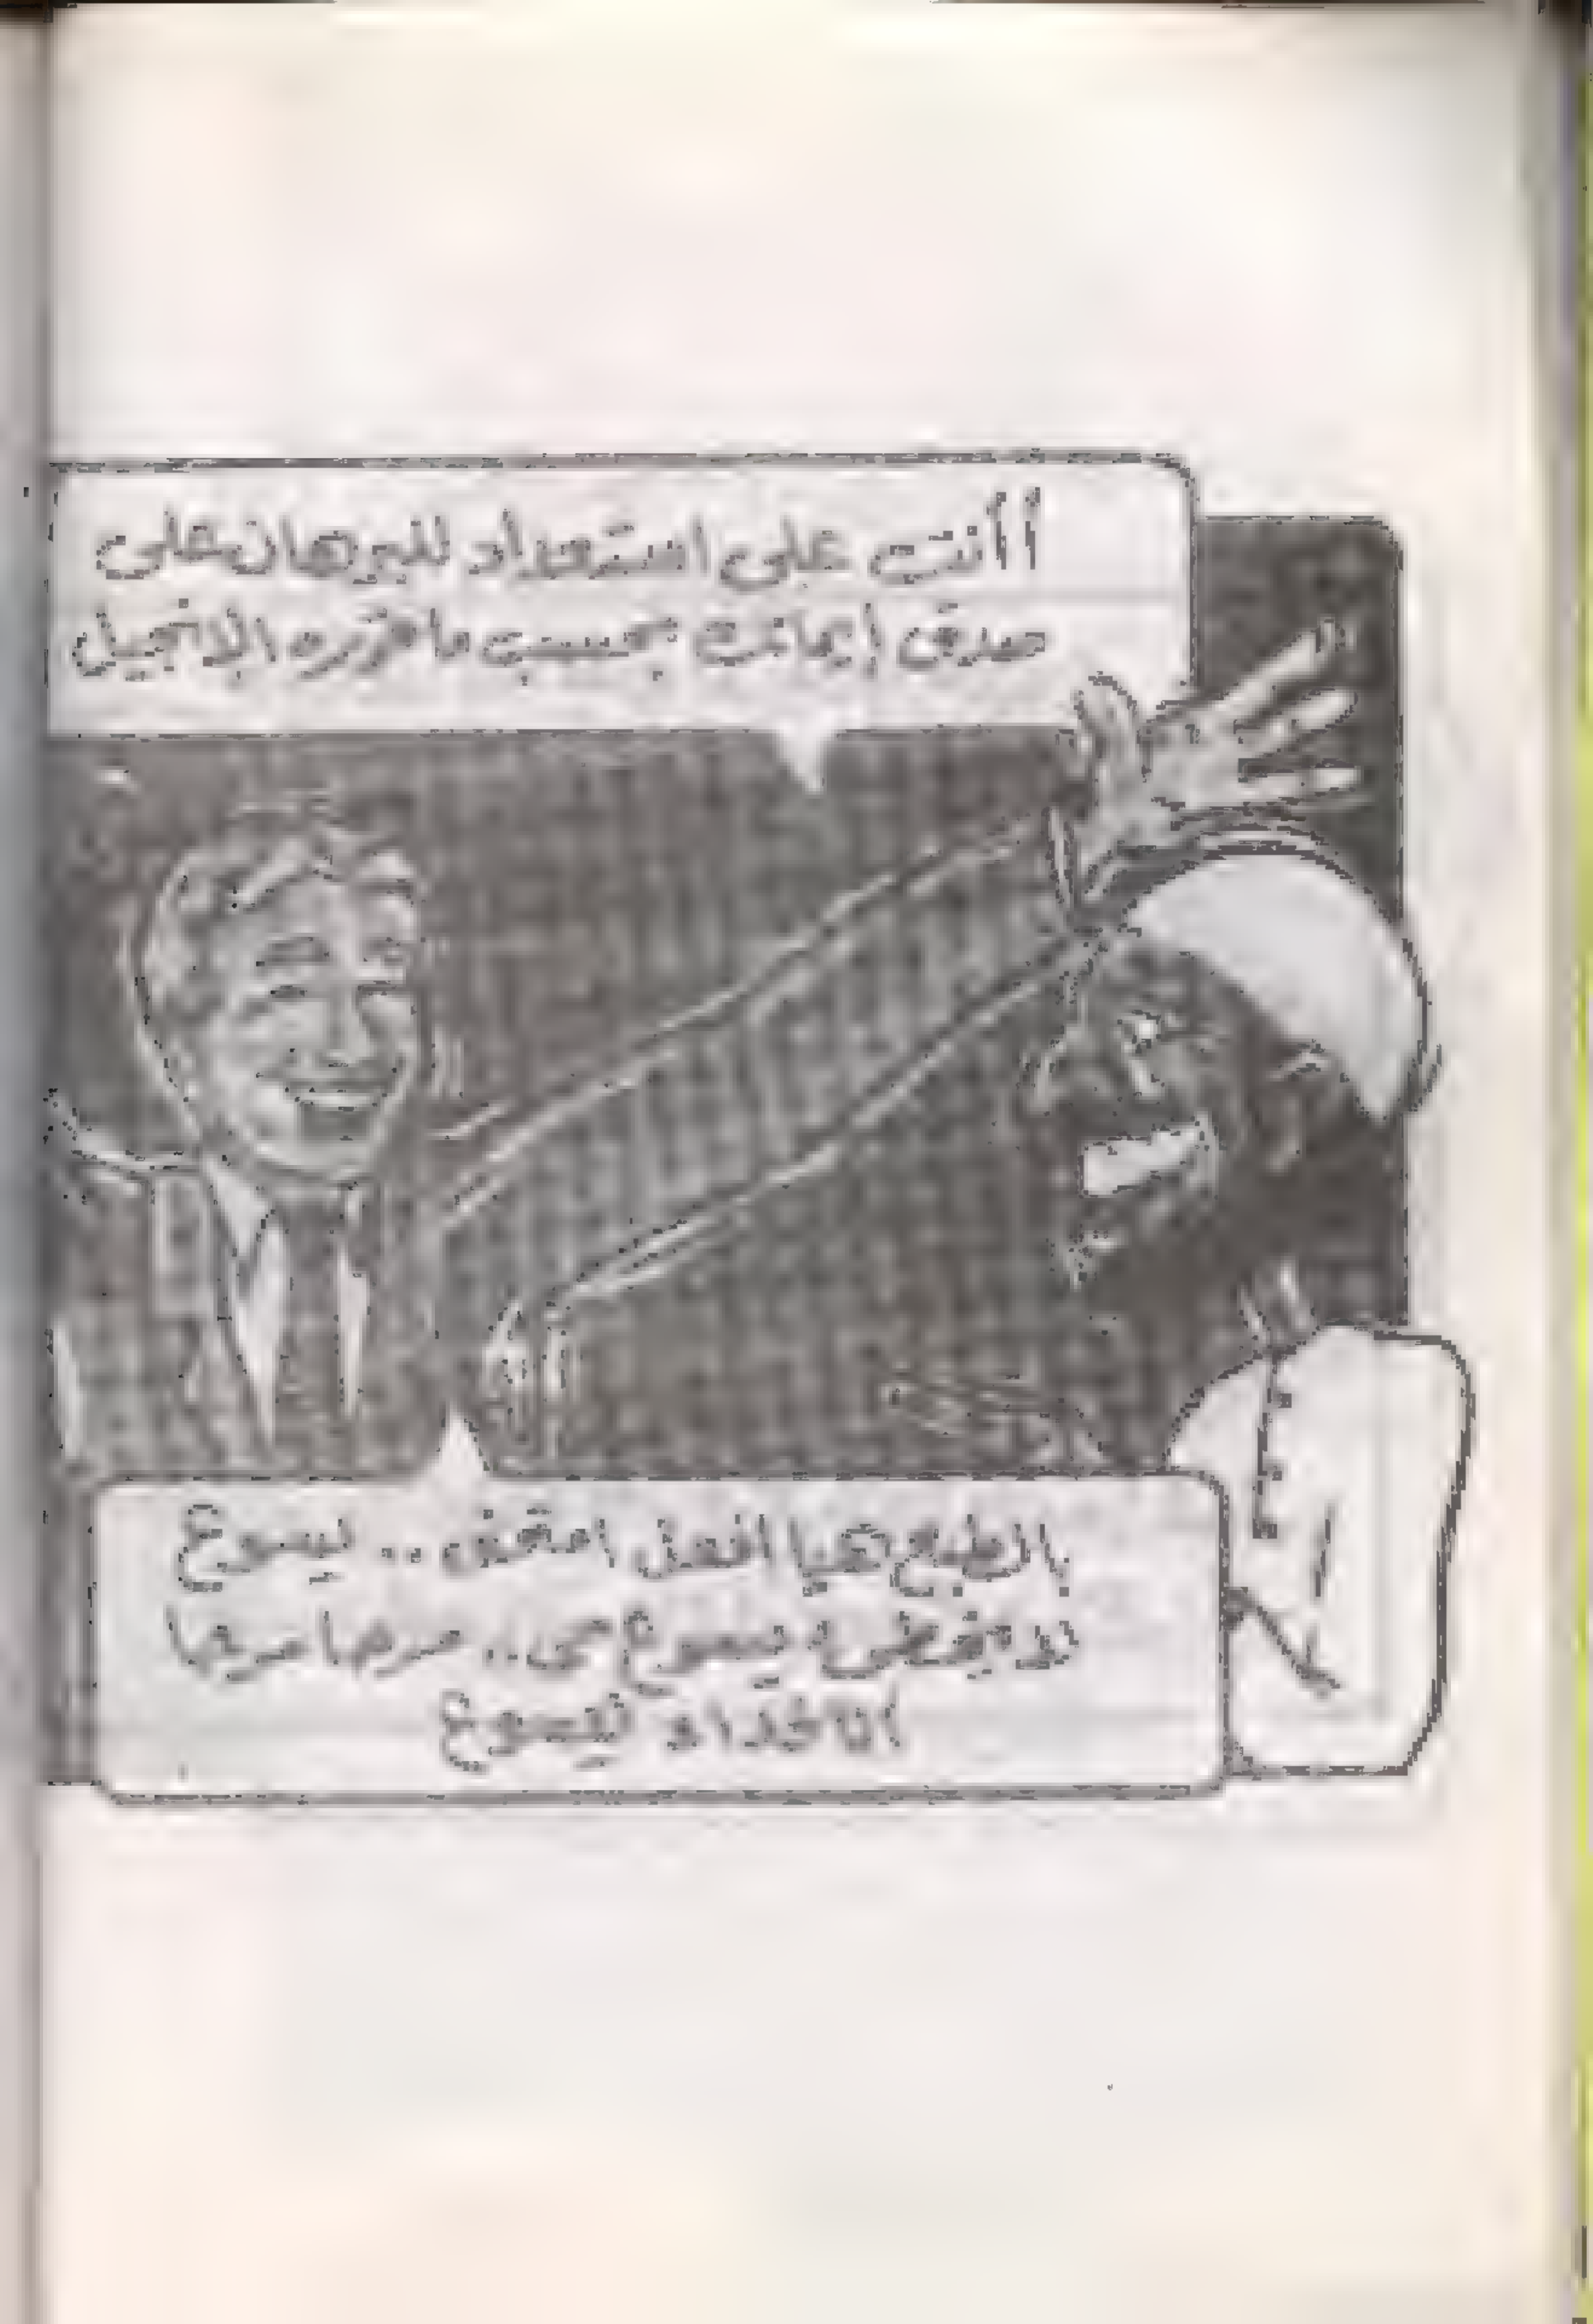 أأنت على استعداد للبرهان على
صدق إيمانك بحسب ما قرره الإنجيل
بالطبع هيا افعل امتحنى .. يسوع
يسوع .. سريعا
أنا فداء ليسوع